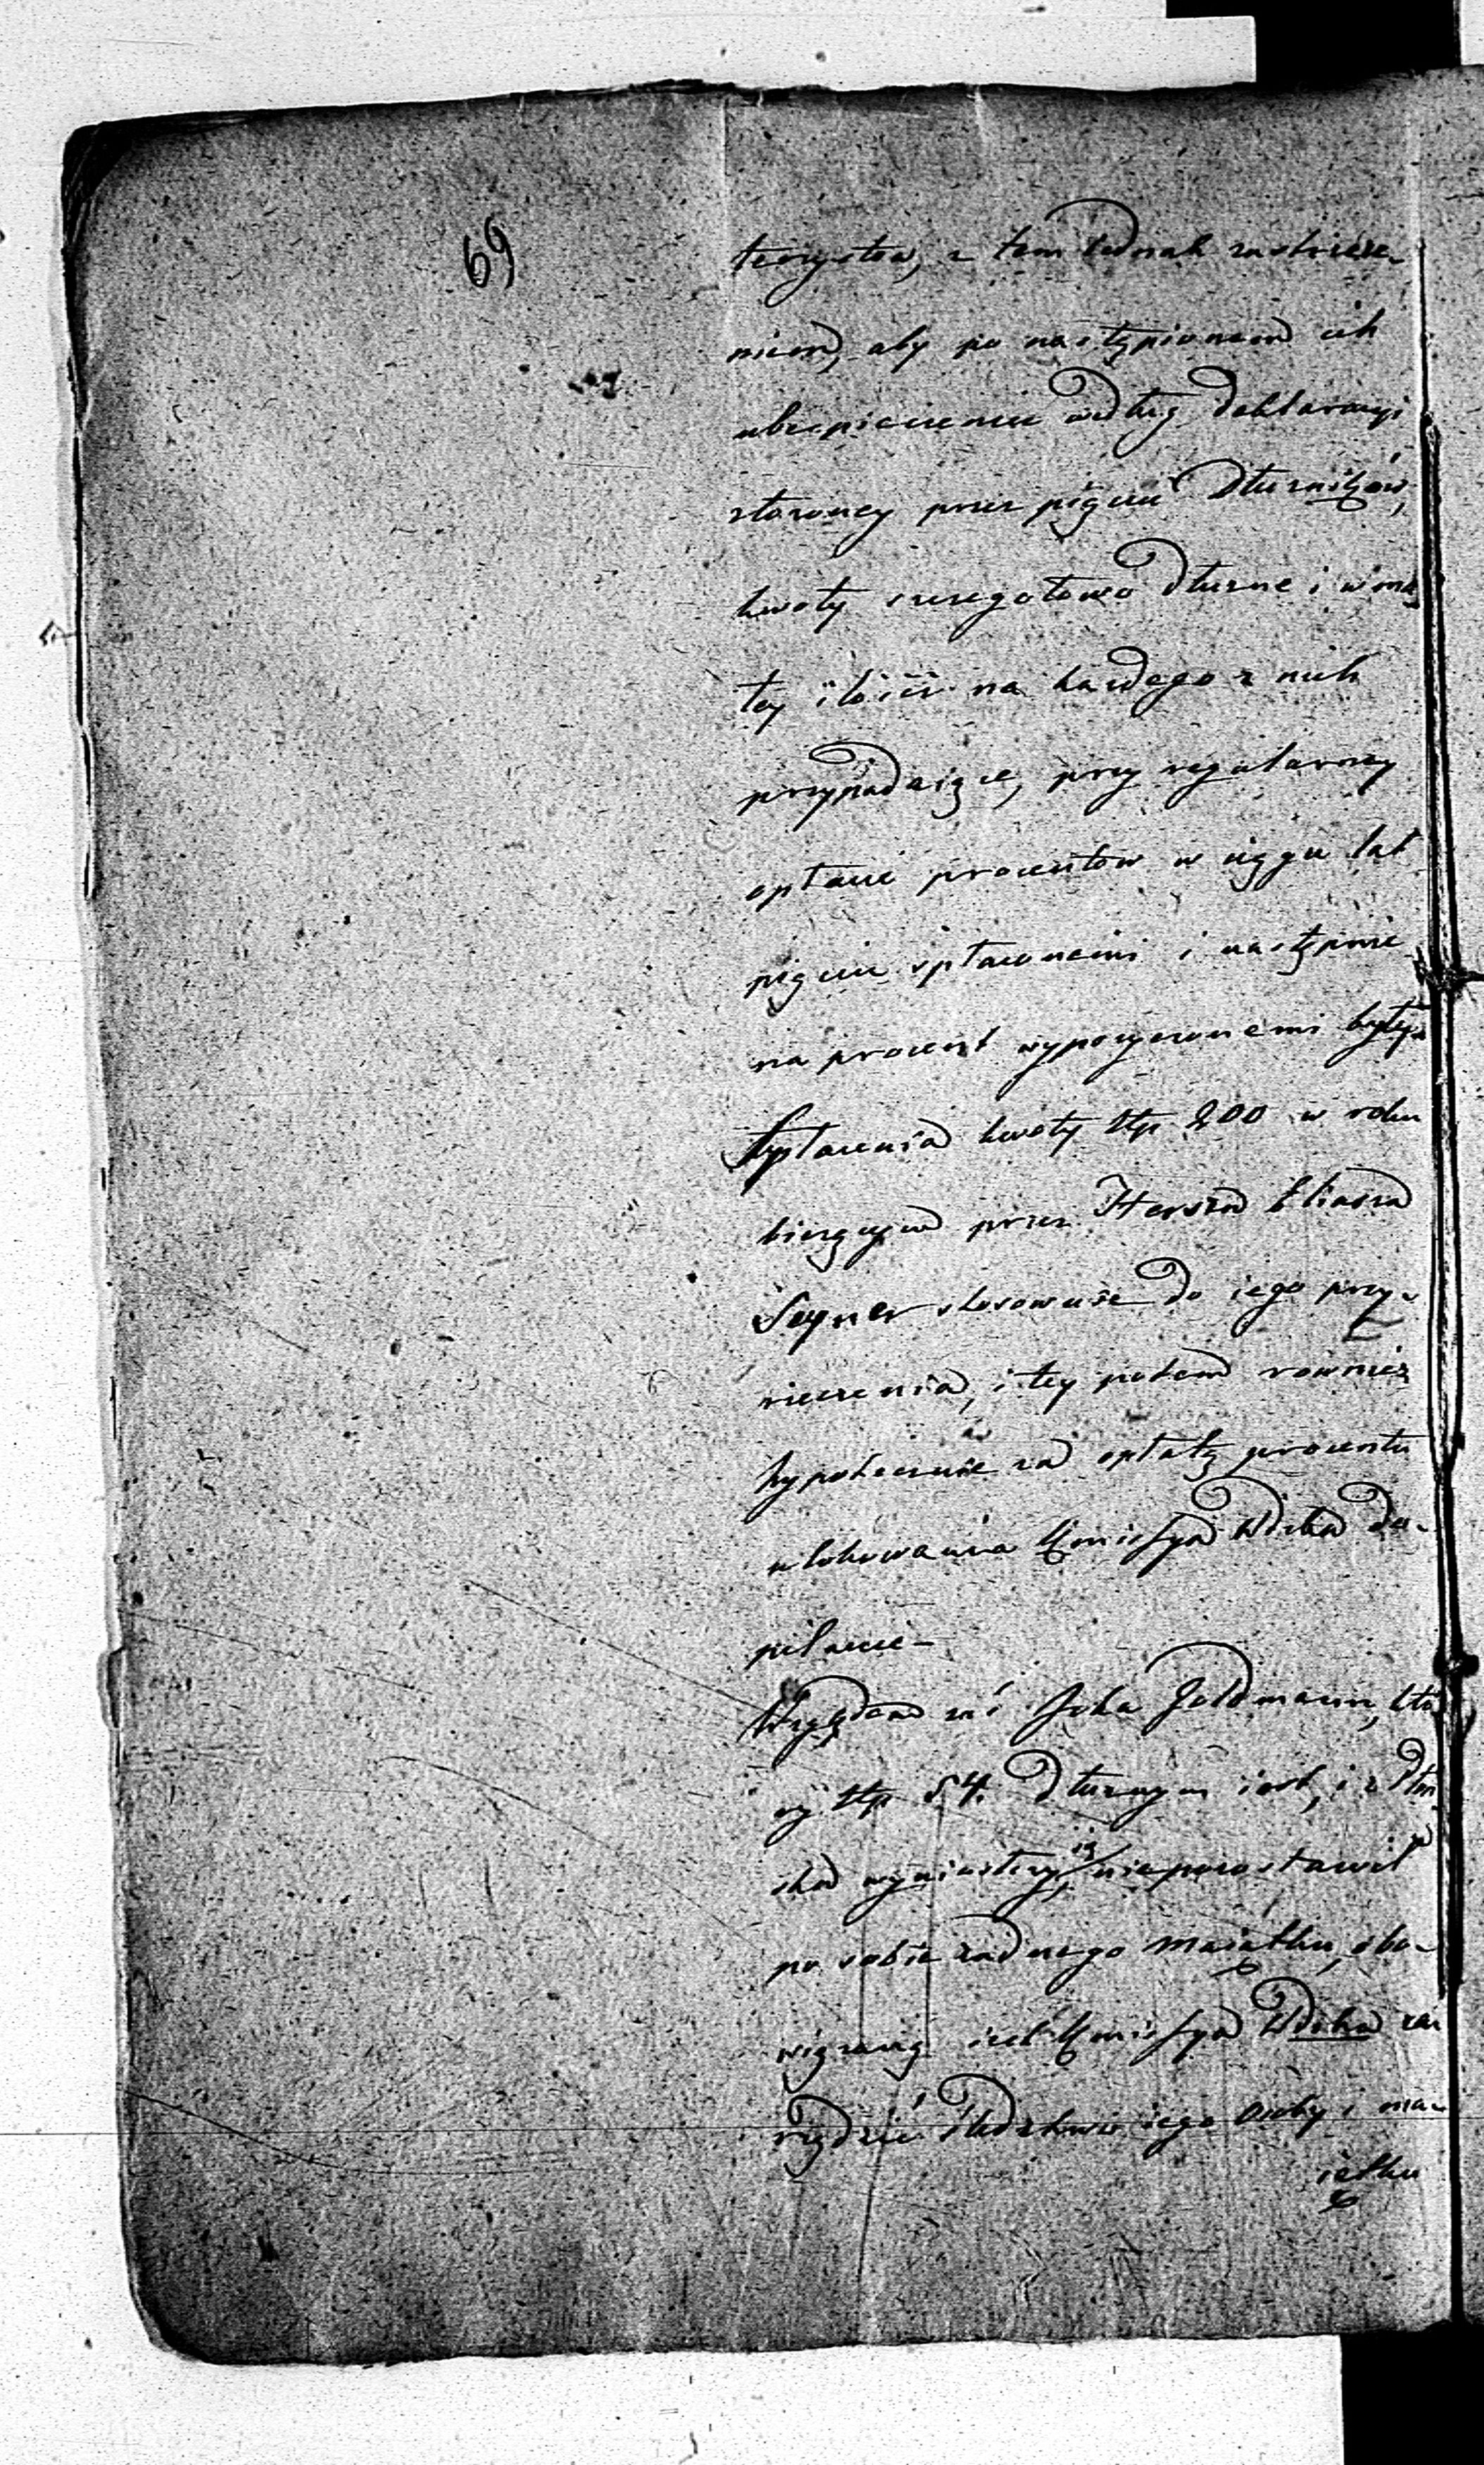 69
terystow, z tem iednak zastrzeże-
niem, aby po nastąpionem ich
ubezpieczeniu według deklaracyi
złożoney przez pięciu Dłużników,
kwoty szczegołowo dłużne i w ma-
tey ilości na każdego z nich
przypadaiące, przy regularney
opłacie procentow w ciągu lat
pięciu spłaconemi i następnie
na procent wypożyczonemi były.
Spłacenia kwoty Złp 200 w roku
bieżącym przez Herszka Eliasza
Seyner stosownie do iego przy-
rzeczenia, i tey potem rownież
hypotecznie za opłatą procentu
ulokowania Kommissya Wdzka do-
pilnuie –
Względem zaś Joka Goldmann, któ-
ry Złp 54. dłużnym iest, i z Płoc-
ka wyniosłszy się, nie pozostawił
po sobie żadnego maiątku, obo-
wiązaną iest Kommissya Wdzka za-
rządzić śledztwo iego osoby i ma-
iątku